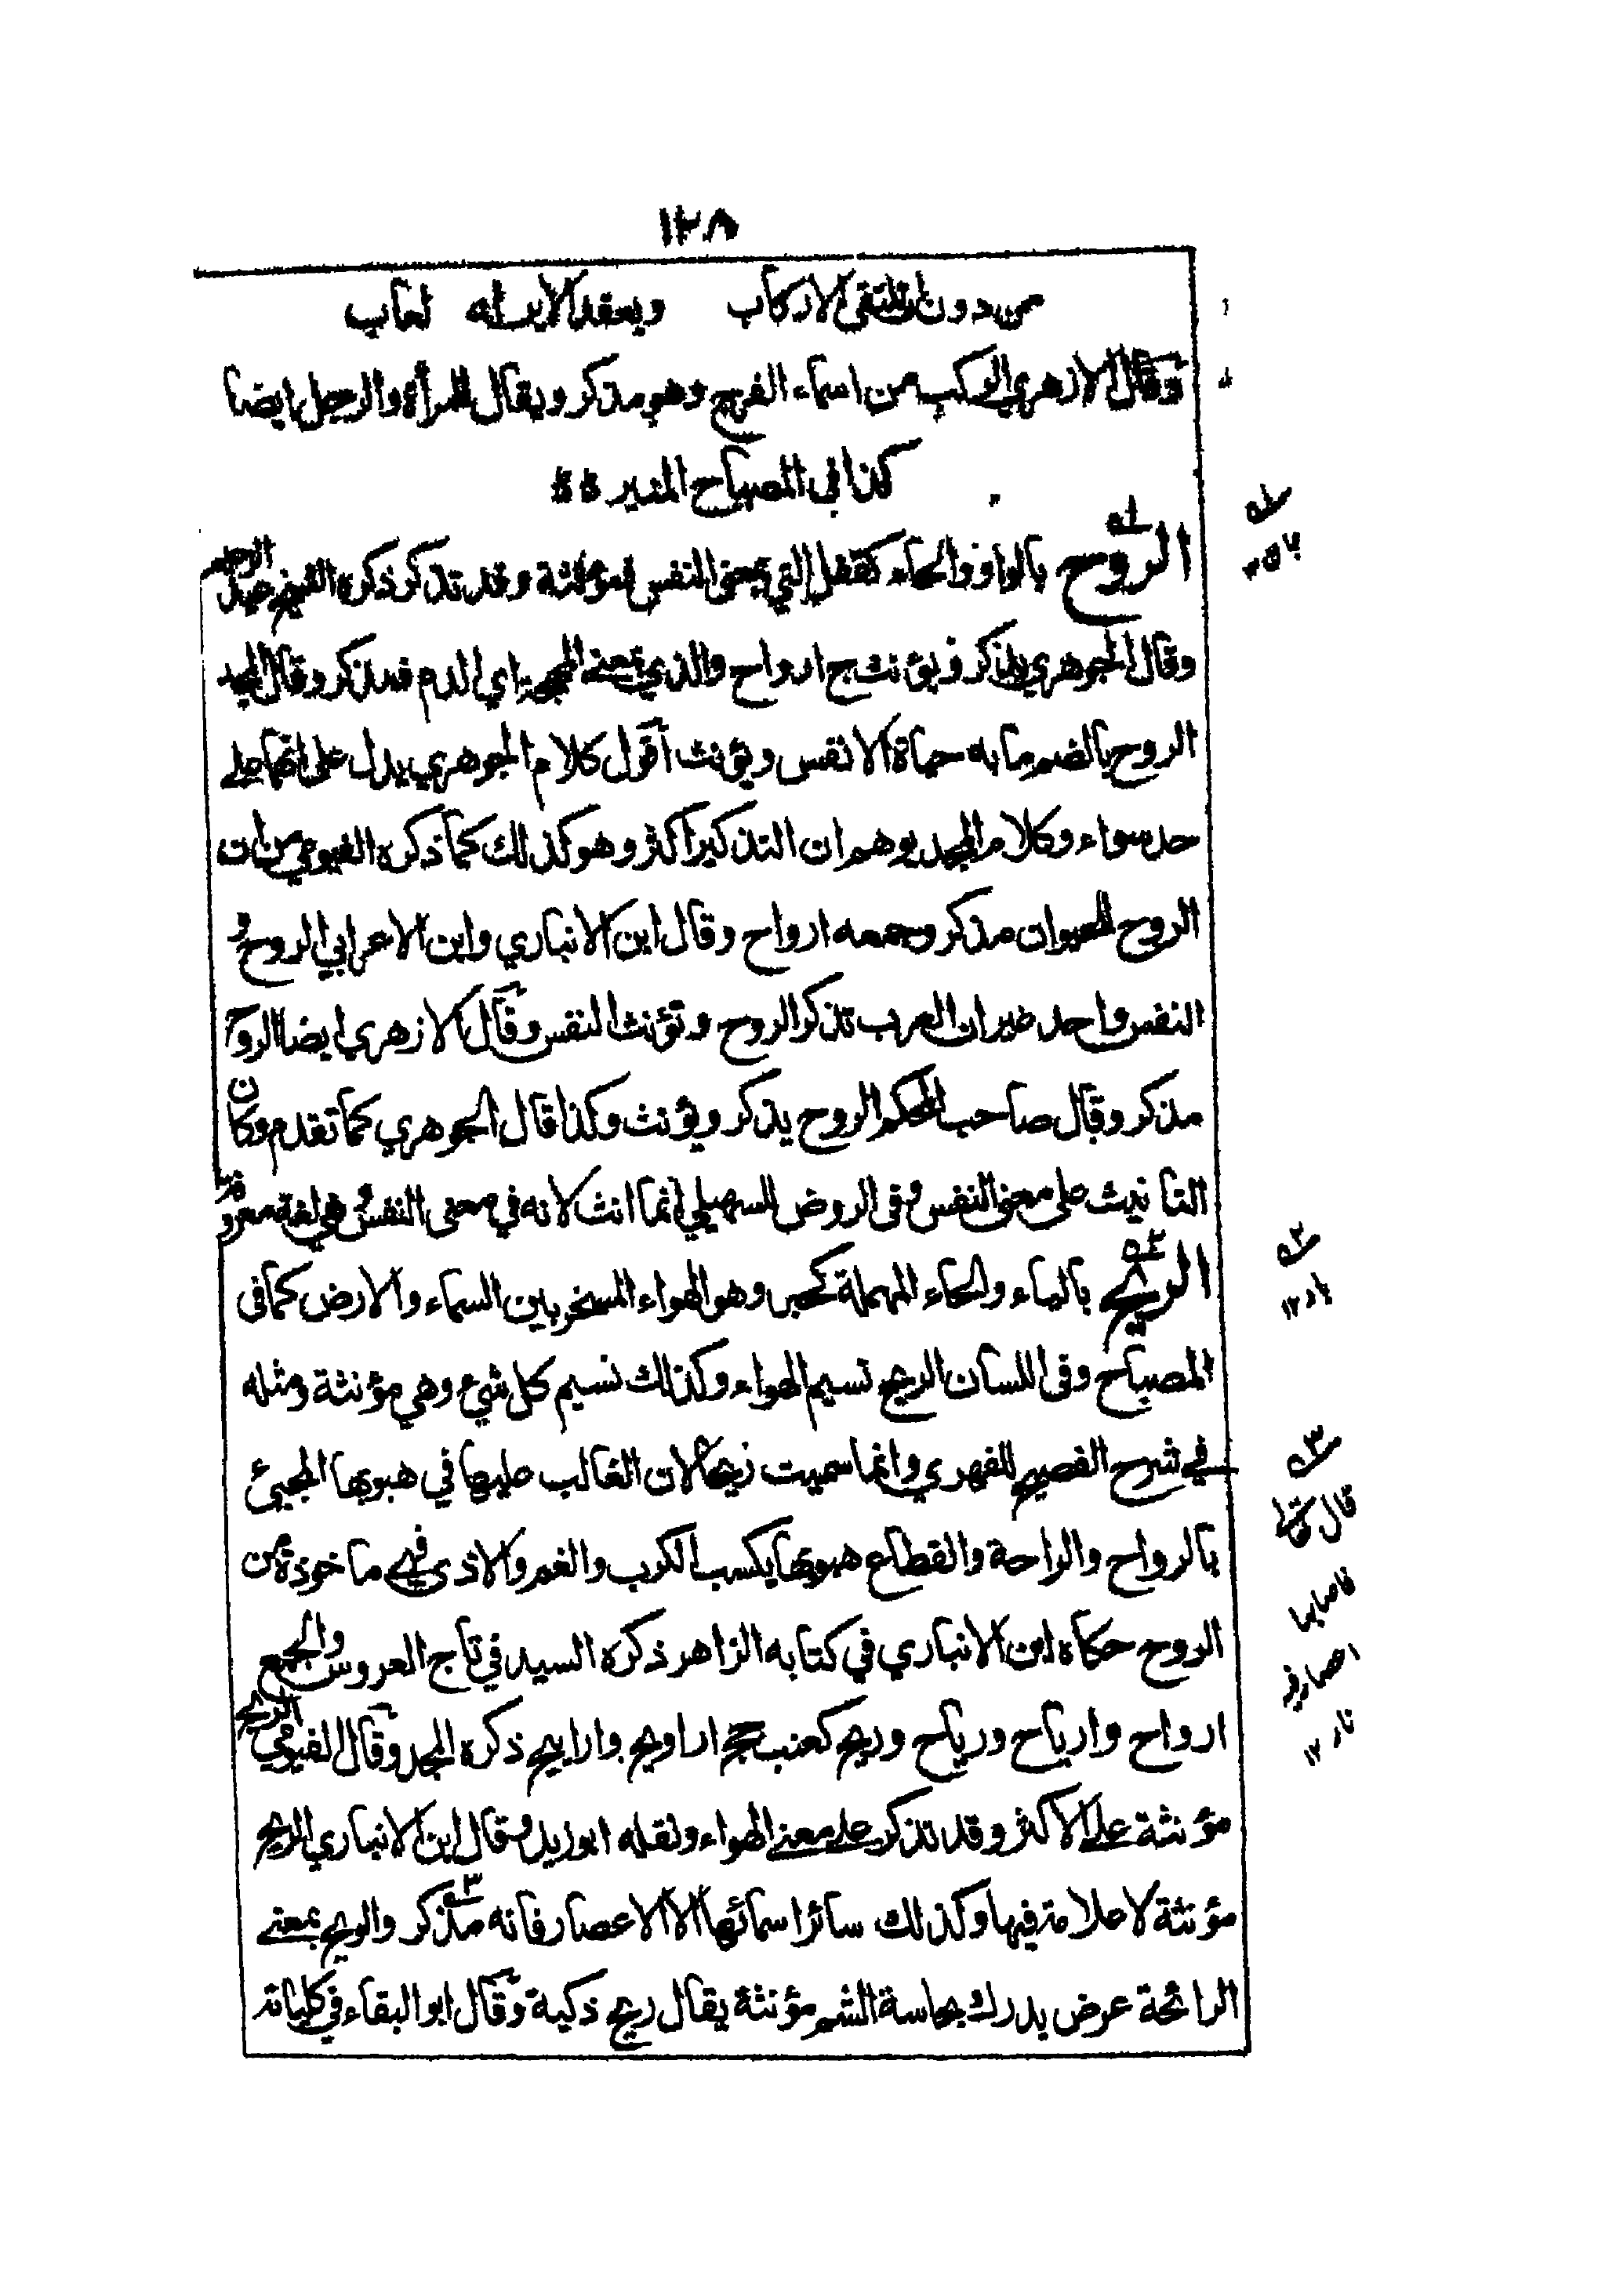 ١٢٨
من دون ان تلتقي الاركاب ويقعد الاير له لعاب
وقال الازهري الركب من اسماء الفرج وهو مذكر ويقال للمرأة والرجل ايضا
كذا في المصباح المنير
الروح بالواو والحاء كقفل التي بمعنى النفس فمؤنثة وقد تذكر ذكره الشيخ عبد الرحيم
وقال الجوهري يذكر ويؤنث ج ارواح والذي بمعنى المهجة اي الدم فمذكر وقال المجد
الروح بالضم ما به حياة الانفس ويؤنث اقول كلام الجوهري يدل على انهما على
حد سواء وكلام المجد يوهم ان التذكير اكثر وهو كذلك كما ذكره الفيومي من ان
الروح للحيوان مذكر وجمعه ارواح وقال ابن الانباري وابن الاعرابي الروح و
النفس واحد غير ان العرب تذكر الروح وتؤنث النفس وقال الازهري ايضا الروح
مذكر وقال صاحب المحكم الروح يذكر ويؤنث وكذا قال الجوهري كما تقدم وكان
التانيث على معنى النفس وفى الروض للسهيلي انما انث لانه في معنى النفس وهي لغة معروفة
الريح بالياء والحاء المهملة كحبر وهو الهواء المسخر بين السماء والارض كما فى
المصباح وفى اللسان الريح نسيم الهواء وكذلك نسيم كل شيء وهي مؤنثة ومثله
في شرح الفصيح للفهري وانما سميت ريحا لان الغالب عليها في هبوبها المجيئ
بالرواح والراحة وانقطاع هبوبها يكسب الكرب والغم والاذى فهي ماخوذة من
الروح حكاه ابن الانباري في كتابه الزاهر ذكره السيد في تاج العروس والجمع
ارواح وارياح ورياح وريح كعنب جج اراويح واراييح ذكره المجد وقال الفيومي الريح
مؤنثة على الاكثر وقد تذكر على معنى الهواء ونقله ابو زيد وقال ابن الانباري الريح
مؤنثة لا علامة فيها وكذلك سائر اسمائها الا الاعصار فانه مذكر والريح بمعنى
الرائحة عرض يدرك بحاسة الشم مؤنثة يقال ريح ذكية وقال ابو البقاء في كلياته
١ه
٢ه
باد ١٢
٣ه
قال تعالى
فاصابها
اعصار فيه
نار ١٢